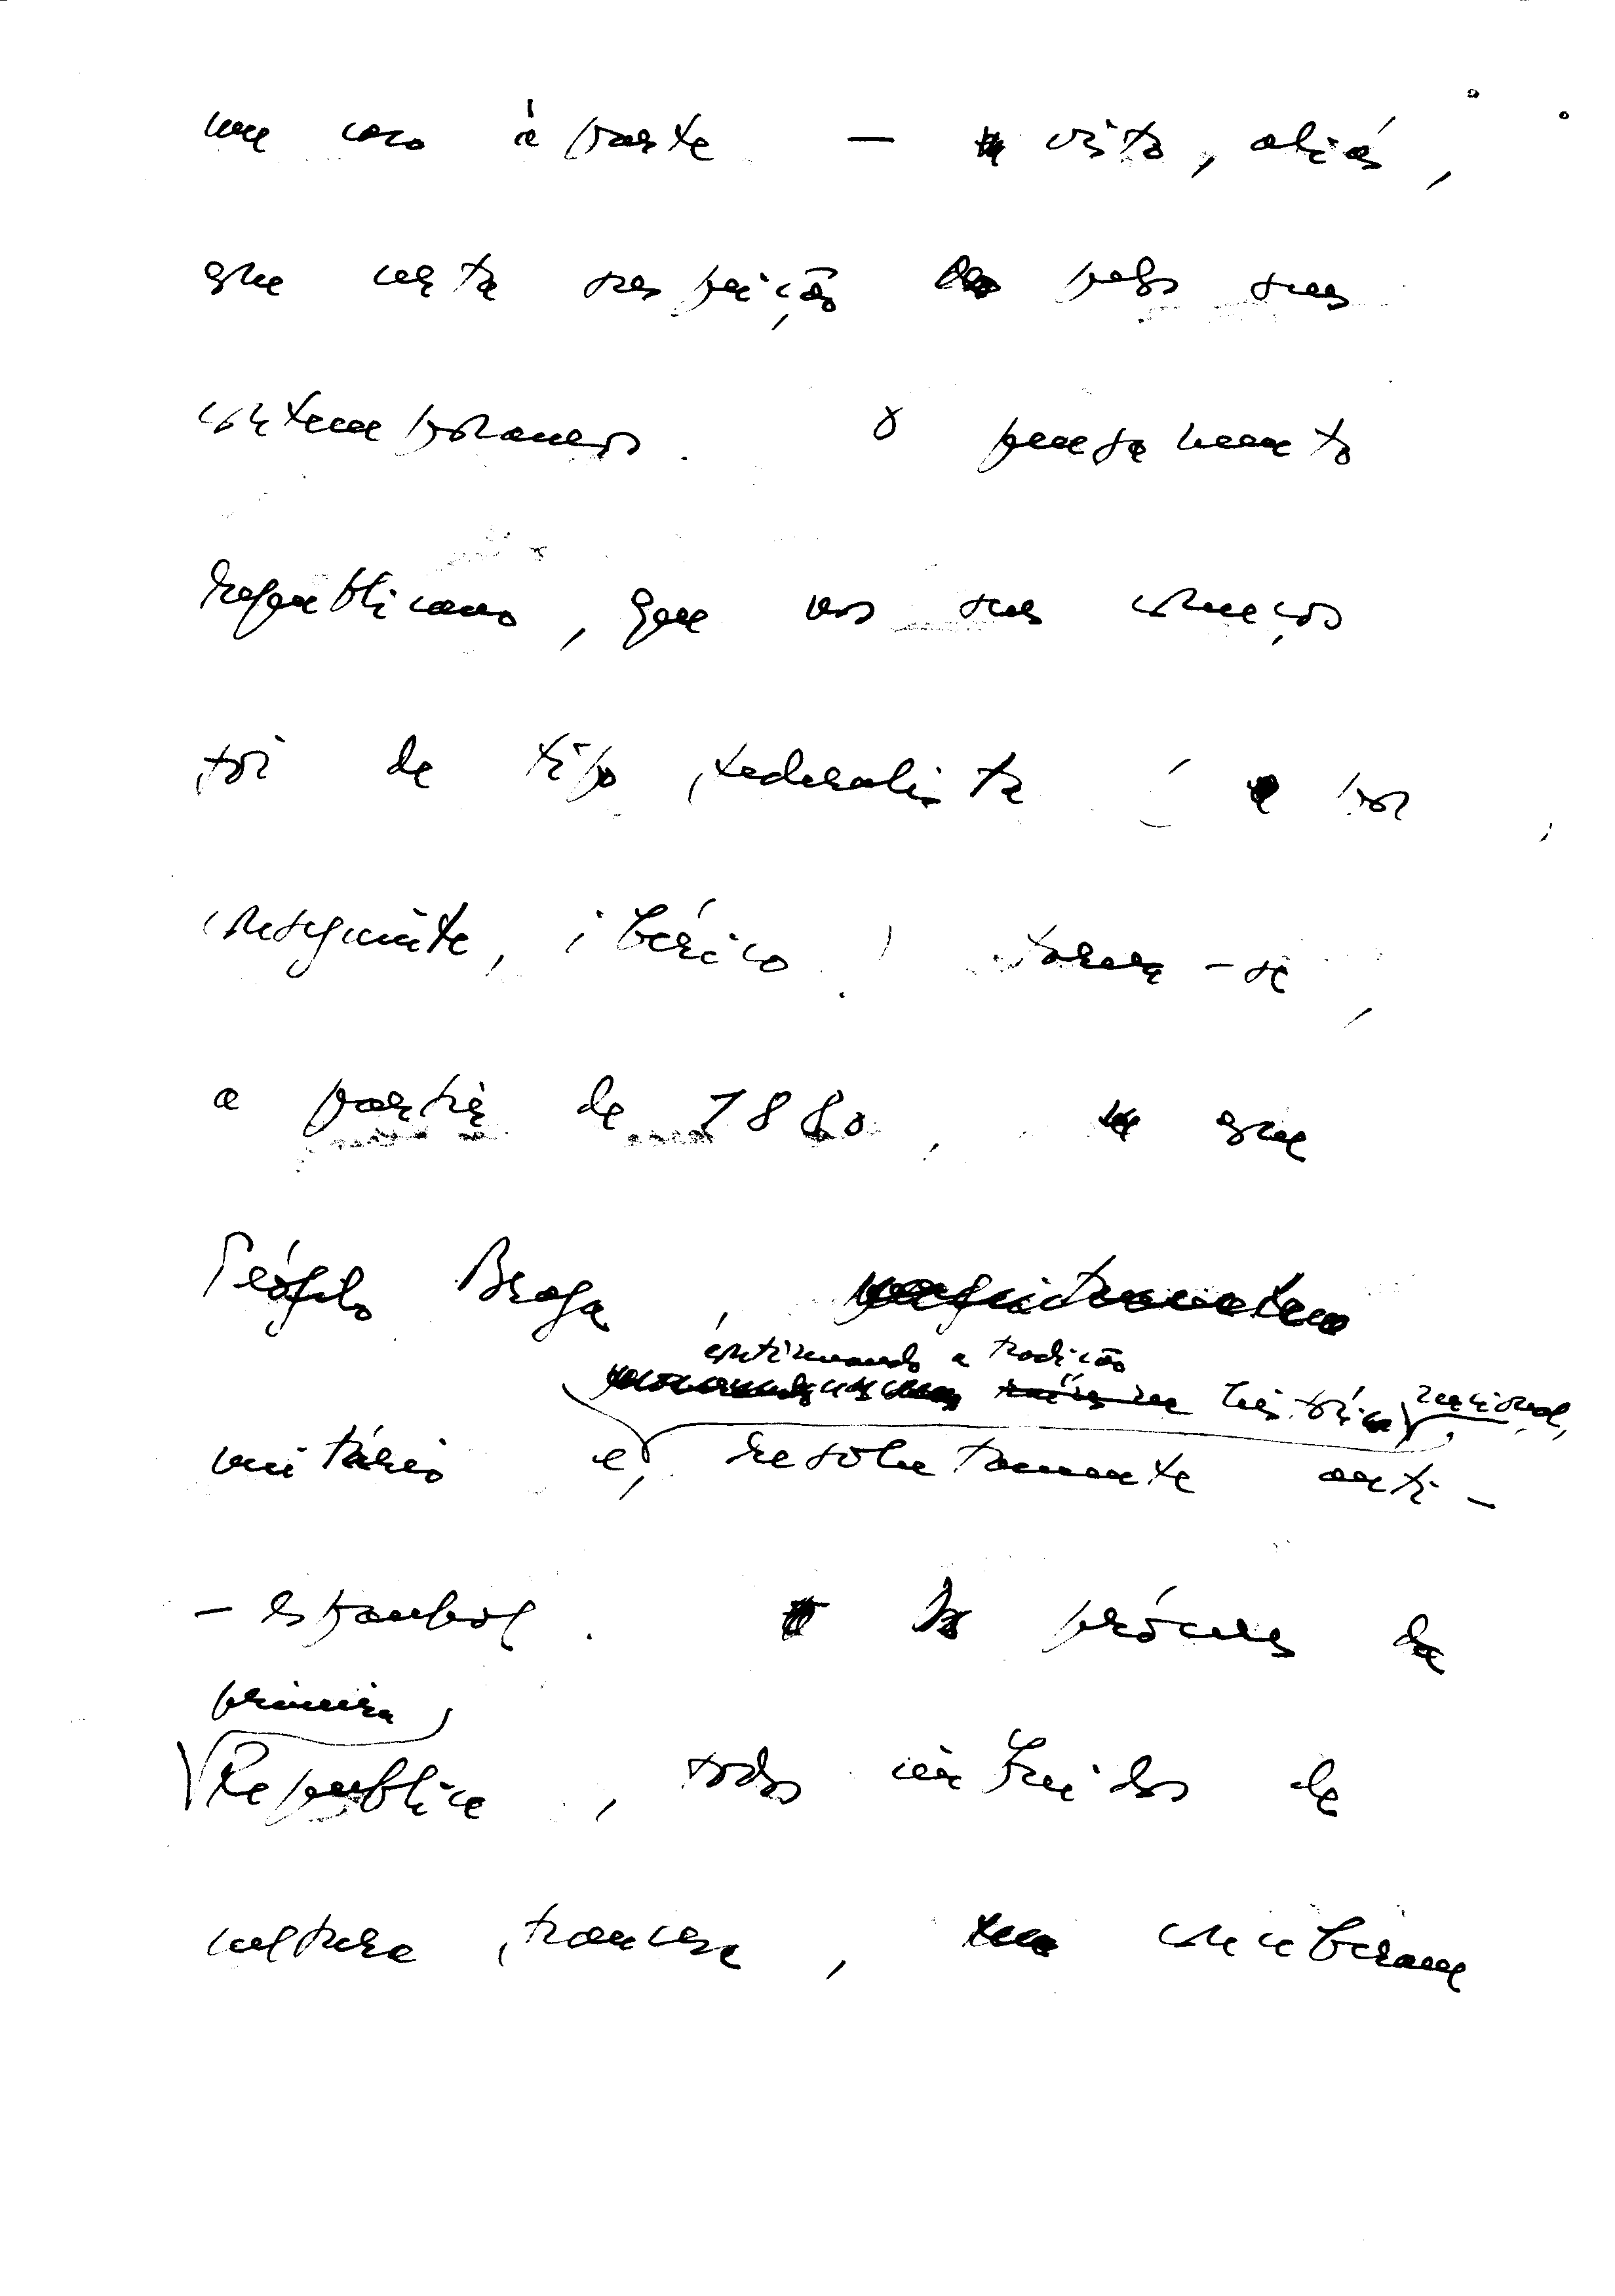 um caso à parte — visto, aliás,
com certa suspeição pelos seus
contemporâneos. O pensamento
republicano, que nos seus começos
foi de tipo federalista (e por
conseguinte, ibérico) torna-se,
a partir de 1880, com
Teófilo Braga,
continuando a tradição
histórica nacional,
unitário e, resolutamente anti-
-espanhol. Os próceres da
primeira
República, todos imbuídos de
cultura francesa, conceberam